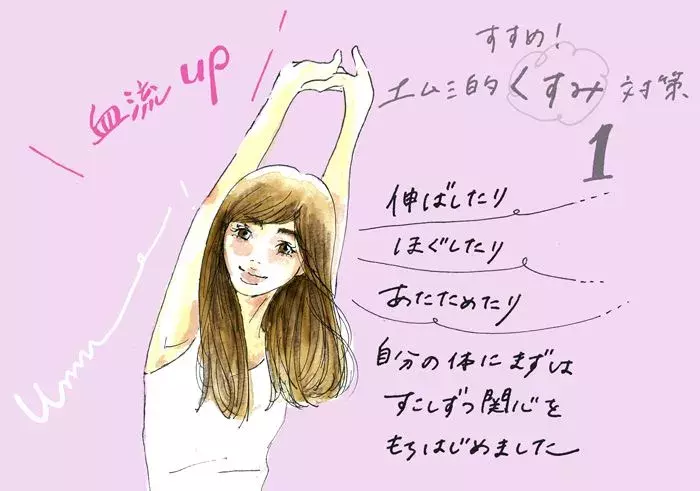 血流up
すすめ!
エムミ的くすみ対策
1
伸ばしたり
ほぐしたり
あたためたり
自分の体にまずは
すこしずつ関心を
もちはじめました
Umm